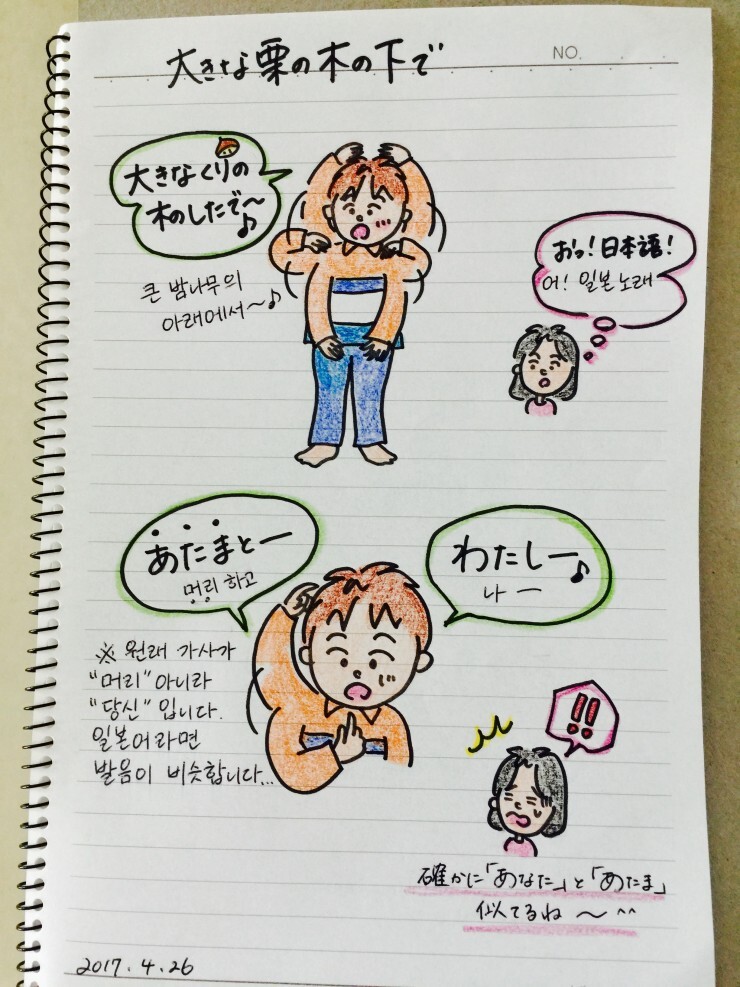 大きな栗の木の下で
NO.
大きなくりの
木のしたで〜♪
큰 밤나무의
아래에서〜♪
おっ!日本語!
어! 일본노래
あたまとー
머리 하고
わたしー♪
나 ー
※ 원래 가사가
"머리" 아니라
"당신" 입니다.
일본어라면
발음이 비슷합니다...
!!
確かに「あなた」と「あたま」
似てるね 〜 ^^
2017. 4. 26